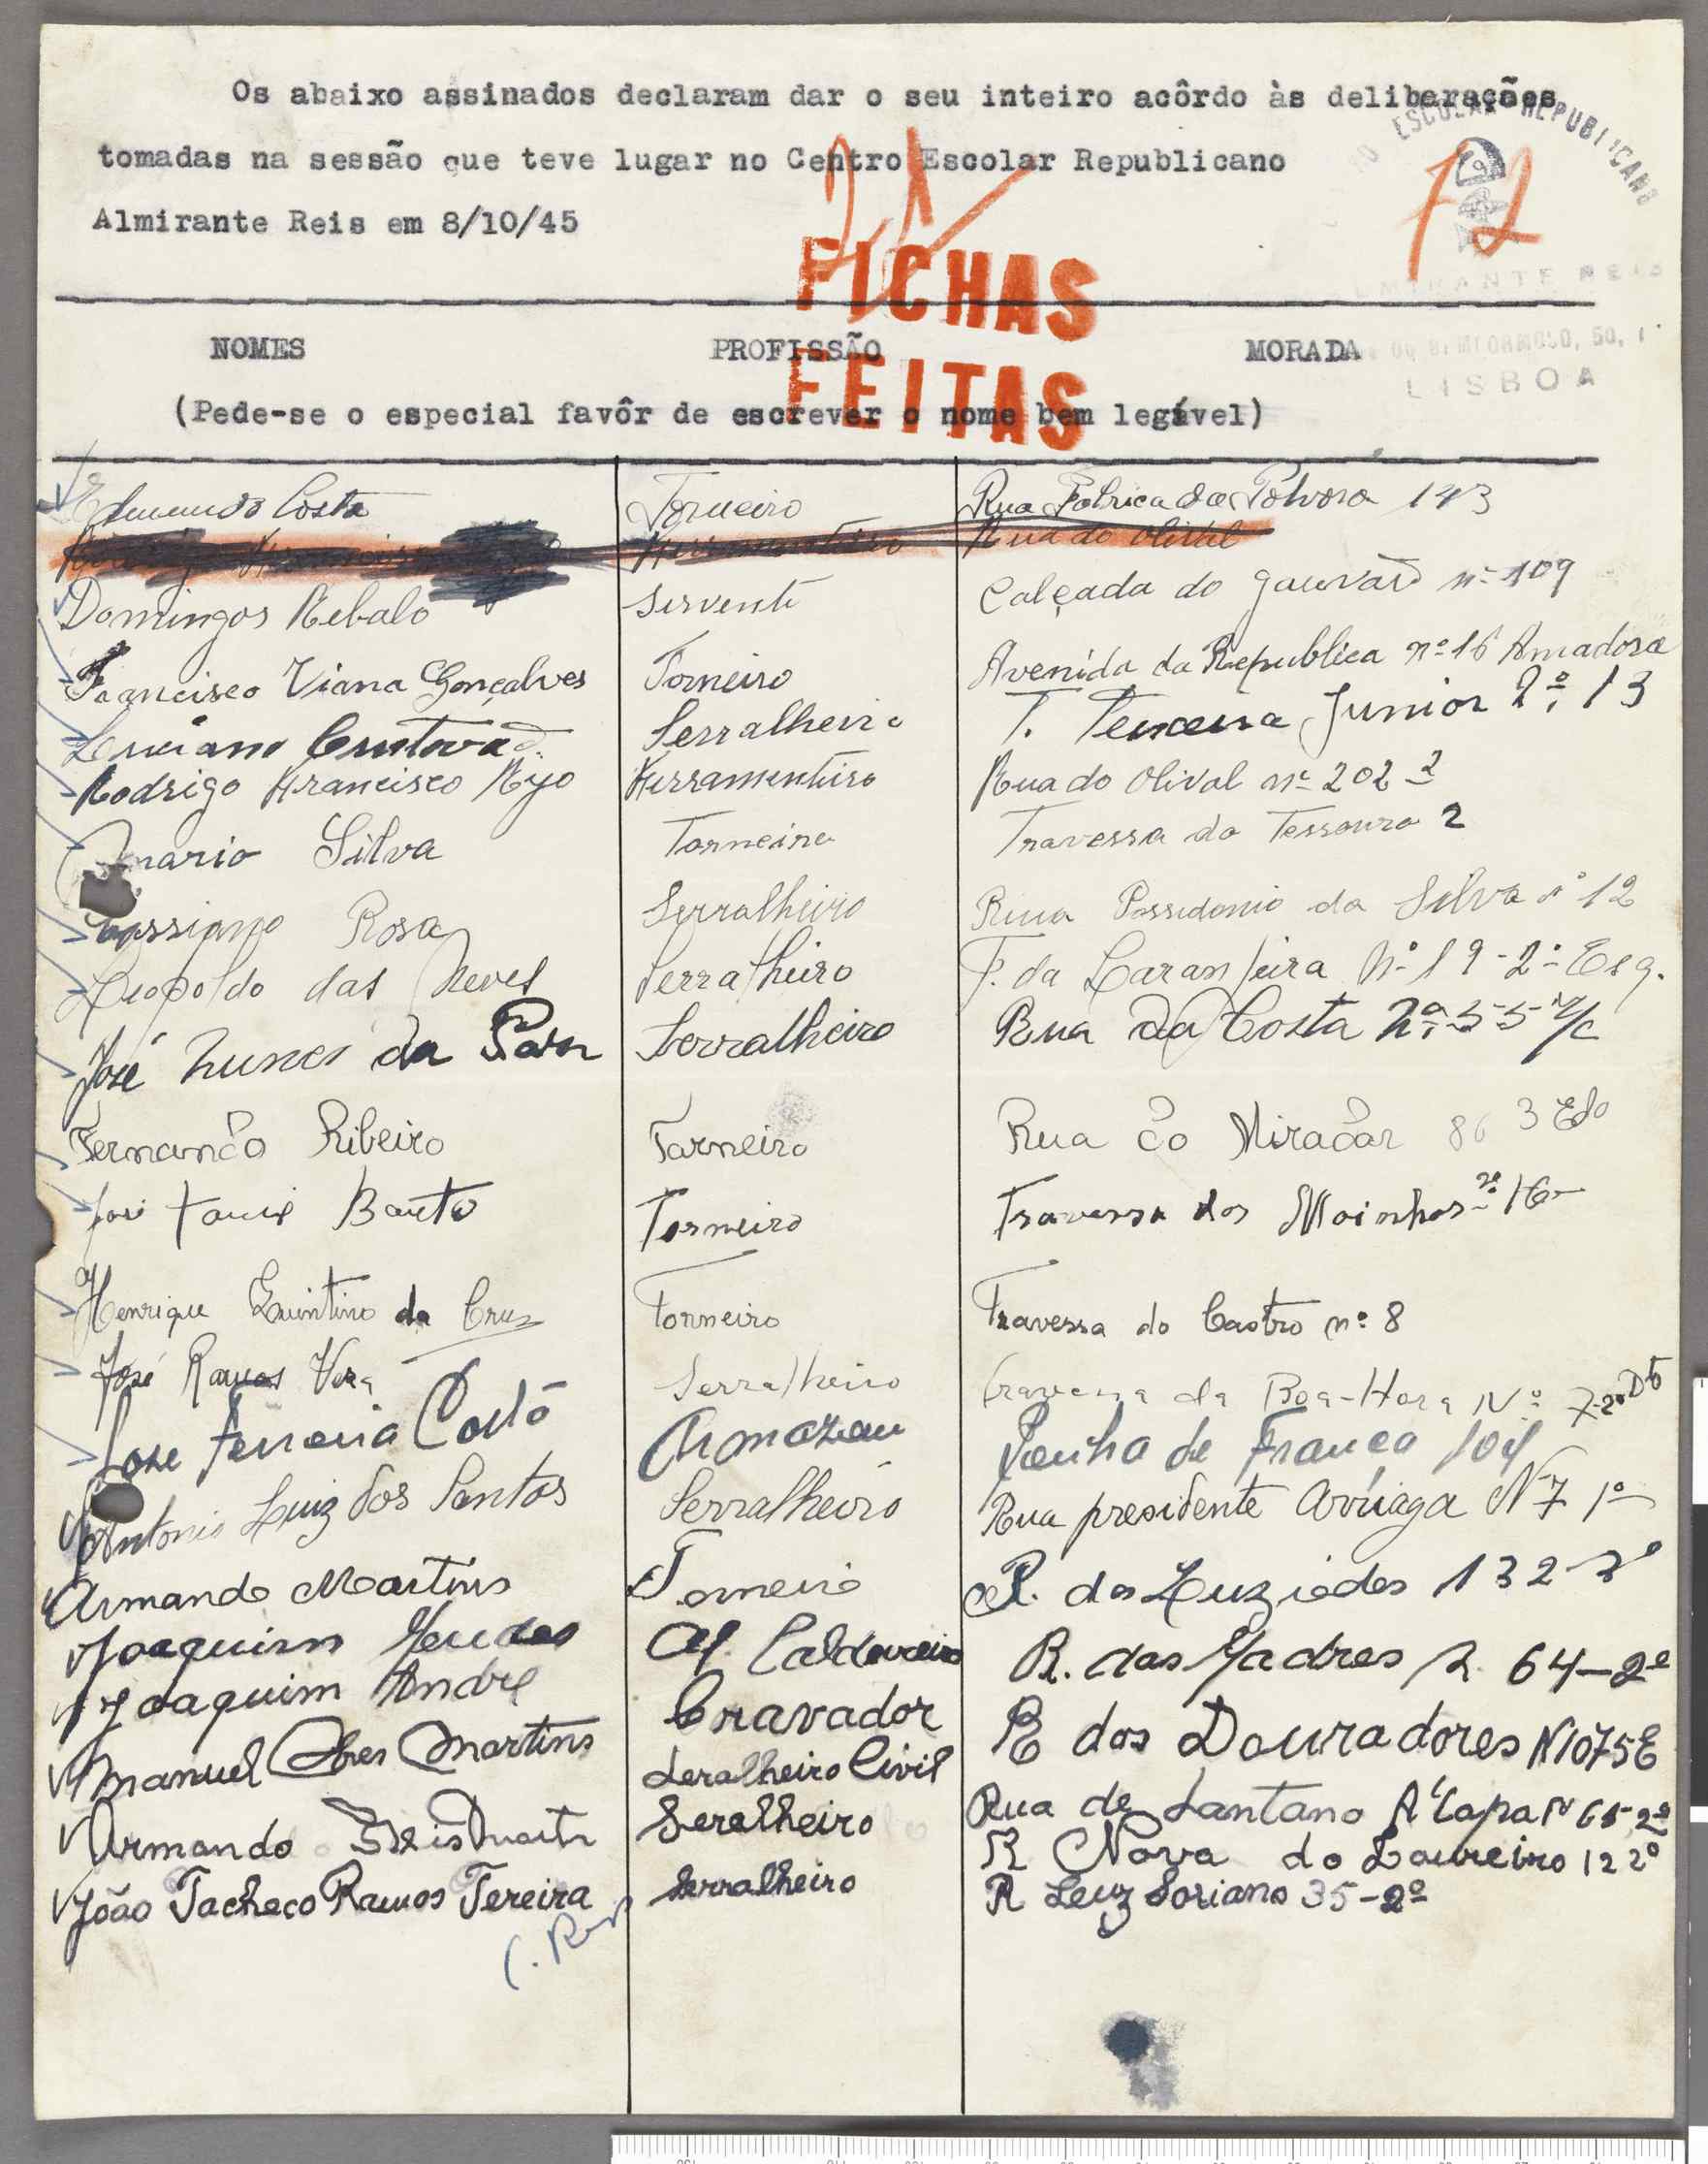 Os abaixo assinados declaram dar o seu inteiro acôrdo às deliberações
tomadas na sessão que teve lugar no Centro Escolar Republicano
Almirante Reis em 8/10/45
ESCOLAR REPUBLICANO
ALMIRANTE REIS
LISBOA
21
12
FICHAS
FEITAS
NOMES PROFISSÃO MORADA
(Pede-se o especial favôr de escrever o nome bem legível)
Edmundo Costa Torneiro Rua Fabrica da Polvora 143
Rua do Olival
Domingos Rebalo Servente Calçada do nº 109
Francisco Viana Gonçalves Torneiro Avenida da Republica nº 16 Amadora
Luciano Serralheiro T. Teixeira Junior 2º, 13
Rodrigo Francisco Rijo Ferramenteiro Rua do Olival nº 202 2
Mario Silva Torneiro Travessa do Tessouro 2
Cassiano Rosa Serralheiro Rua Possidonio da Silva nº 12
Leopoldo das Neves Serralheiro T. da Laranjeira Nº 19-2º Esq.
José Nunes da Serralheiro Rua da Costa nº 55 r/c
Fernando Ribeiro Torneiro Rua do Miradar 86 3 Edo
José Bento Torneiro Travessa dos Moinhos nº 16
Henrique Quintino da Cruz Torneiro Travessa do Castro nº 8
José Ramos Vera Serralheiro Travessa da Boa-Hora Nº 7-2º Dto
Jose Ferreira Costa Armazem Penha de França 104
Antonio Luiz dos Santos Serralheiro Rua presidente Arriaga N 7 1º
Armando Martins Torneiro R. dos Luziades 132-3º
Joaquim Mendes Caldeireiro R. das Madres 64-2º
Joaquim André Cravador R dos Douradores N 107 5E
Manuel Martins Seralheiro Civil Rua de Santana A' Lapa N 68-2º
Armando Reis Duarte Seralheiro R Nova do Loureiro 12 2º
João Pacheco Ramos Pereira Serralheiro R Luz Soriano 35-2º